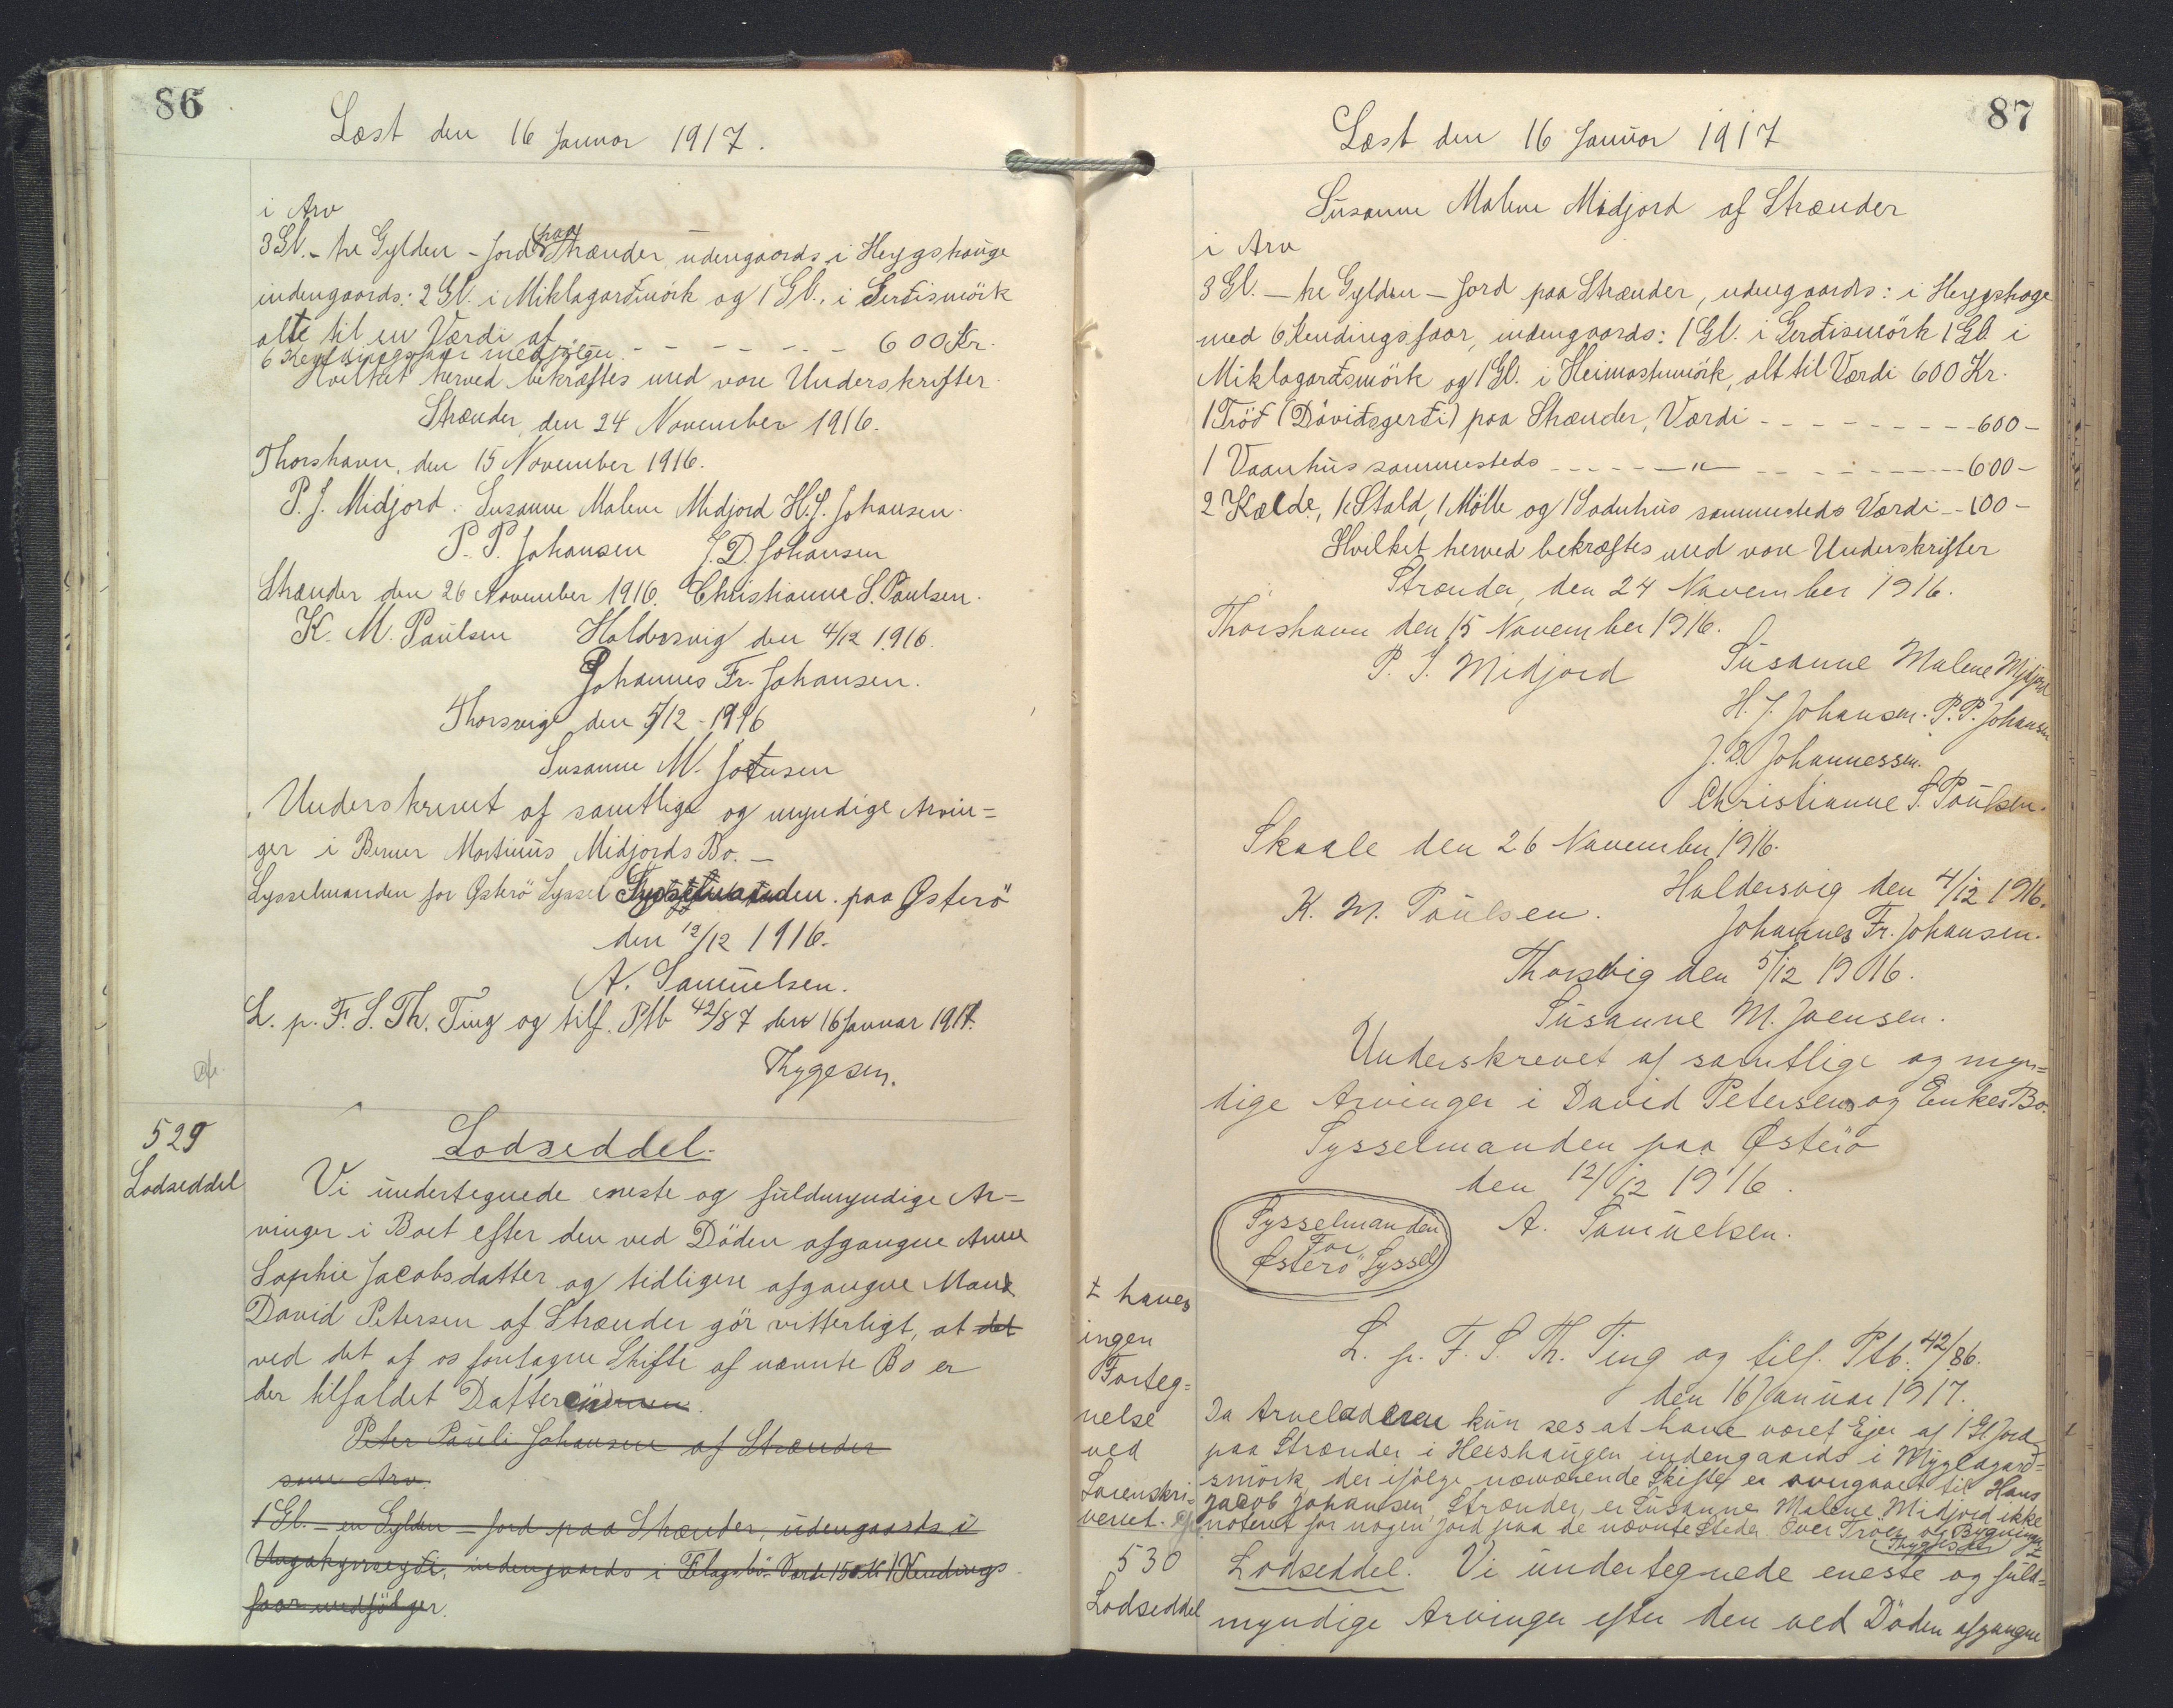 86
Læst den 16 Januar 1917.
i Arv
3 Gl. - tre Gylden - Jord paa Strænder, udengaards i Heygshauge
indengaards: 2 Gl. i Miklagarðsmörk og 1 Gl. i Gerðismörk
alt til en Værdi af - - - - - - 600 Kr.
6 Kendingsfaar medfølger.
Hvilket herved bekræftes med vore Underskrifter.
Strænder, den 24 November 1916.
Thorshavn, den 15 November 1916.
P. J. Midjord. Susanne Malene Midjord H. J. Johansen.
P. P. Johansen J. D. Johansen
Strænder den 26 November 1916. Christianne S. Poulsen.
K. M. Paulsen Haldersvig den 4/12 1916.
Johannes Fr. Johansen.
Thorsvig den 5/12 - 1916
Susanne M. Joensen
Underskrevet af samtlige og myndige Arvin=
ger i Berner Martinus Midjords Bo. —
Sysselmanden for Østerö Syssel Sysselmanden. paa Østerö
den 12/12 1916.
A. Samuelsen.
L. p. F. S. Th. Ting og tilf. Ptb 42/87 den 16 Januar 1917.
Thygesen.
529
Lodseddel
Lodseddel.
Vi undertegnede eneste og fuldmyndige Ar=
vinger i Boet efter den ved Döden afgangne Anne
Sophie Jacobsdatter og tidligere afgangne Mand
David Petersen af Strænder gör vitterligt, at det
ved det af os foretagne Skifte af nævnte Bo er
der tilfaldet Datteren
Peter Pauli Johansen af Strænder
som Arv.
1 Gl. - en Gylden - Jord paa Strænder, udengaards i
indengaards i Flagsbö. Værdi 150 Kr 1 Kendings
faar medfölger.
87
Læst den 16 Januar 1917
Susanne Malene Midjord af Strænder
i Arv
3 Gl. - tre Gylden - Jord paa Strænder, udengaards: i Heygshoge
med 6 Kendingsfaar, indengaards: 1 Gl. i Gerðismörk 1 Gl. i
Miklagarðsmörk og 1 Gl. i Heimastumörk, alt til Værdi 600 Kr.
1 Tröð (Dávidsgerði) paa Strænder, Værdi - - - - - - 600 -
1 Vaanhus sammesteds - - - - " - - - - - 600 -
2 Kælde, 1 Stald, 1 Mölle og 1 Soduhus sammesteds Værdi - - 100 -
Hvilket herved bekræftes med vore Underskrifter
Strænder, den 24 November 1916.
Thorshavn den 15 November 1916.
P. J. Midjord Susanne Malene Midjord
H. J. Johansen. P. P. Johansen
J. D. Johannessen.
Christianne S. Poulsen.
Skaale den 26 November 1916.
Haldersvig den 4/12 1916.
K. M. Poulsen.
Johannes Fr. Johansen.
Thorsvig den 5/12 1916.
Susanne M. Joensen.
Underskrevet af samtlige og myn=
dige Arvinger i David Petersens og Enkes Bo.
Sysselmanden paa Østerö
den 12/12 1916.
Sysselmanden
For
Østerö Syssel
A. Samuelsen.
L. p. F. S. Th. Ting og tilf. Ptb. 42/86.
den 16 Januar 1917.
Da Arveladeren kun ses at have været Ejer af 1 Gl Jord
paa Strænder i Heeshaugen indengaards i Myglagard=
smörk, der ifölge nærværende Skifte er overgaaet til Hans
Jacob Johansen, Strænder, er Susanne Malene Midjord ikke
noteret for nogen Jord paa de nævnte Steder. Over Tröer og Bygninger ±
Thygesen
± haves
ingen
Forteg=
nelse
ved
Sorenskri=
veriet.
530
Lodseddel
Lodseddel. Vi undertegnede eneste og fuld=
myndige Arvinger efter den ved Döden afgangne